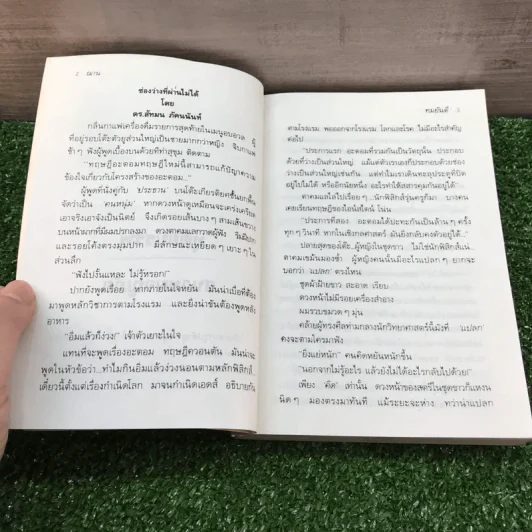 2 ฌาน
ช่องว่างที่ผ่านไม่ได้
โดย
ดร.ลัทมน ภัคนนันท์
กลิ่นกาแฟเครื่องดื่มรายการสุดท้ายในเมนูอบอวล ผู้
ที่อยู่รอบโต๊ะตัวยูส่วนใหญ่เป็นชายมากกว่าหญิง จิบกาแฟ
ช้า ๆ ฟังผู้พูดเบื้องบนด้วยทีท่าสุขุม ติดตาม
"ทฤษฎีอะตอมทฤษฎีใหม่นี้สามารถแก้ปัญหาความ
ข้องใจเกี่ยวกับโครงสร้างของอะตอม..."
ผู้พูดที่นั่งคู่กับ 'ประธาน' บนโต๊ะเกียรติยศชั้นยกพื้น
จัดว่าเป็น 'คนหนุ่ม' หากดวงหน้าดูเหมือนจะเคร่งเครียด
เอาจริงเอาจังเป็นนิตย์ จึงเกิดรอยเส้นบาง ๆ สามเส้นขวาง
บนหน้าผากที่มีผมปรกลงมา ดวงตาคมแลกวาดผู้ฟัง ริมฝีปาก
และรอยโค้งตรงมุมปาก มีลักษณะเหยียด ๆ เยาะ ๆ ใน
ส่วนลึก
"ฟังไปงั้นแหละ ไม่รู้หรอก!"
ปากยังพูดเรื่อย หากภายในใจหยัน มันน่าเบื่อที่ต้อง
มาพูดหลักวิชาการตามโรงแรม และยิ่งน่าขันต้องพูดหลัง
อาหาร
"อิ่มแล้วก็ง่วง!" เจ้าตัวเยาะในใจ
แทนที่จะพูดเรื่องอะตอม ทฤษฎีควอนตัม มันน่าจะ
พูดในหัวข้อว่า...ทำไมกินอิ่มแล้วง่วงนอนตามหลักฟิสิกส์...
เดี๋ยวนี้ตั้งแต่เรื่องกำเนิดโลก มาจนกำเนิดเอดส์ อธิบายกัน
ทมยันตี 3
ตามโรงแรม พอออกจากโรงแรม โลกและโรค ไม่มีอะไรสำคัญ
ต่อไป
"ประการแรก อะตอมที่รวมกันเป็นวัตถุนั้น ประกอบ
ด้วยที่ว่างเป็นส่วนใหญ่ แม้แต่ตัวเรเองก็ประกอบไปด้วยช่อง
ว่างเป็นส่วนใหญ่เช่นกัน แต่ทำไมเราเดินทะลุประตูที่ปิด
อยู่ไปไม่ได้ หรืออีกนัยหนึ่ง อะไรทำให้สสารคุมกันอยู่ได้"
ตาคมแลไล่ไปเรื่อย ๆ...นักฟิสิกส์รุ่นครูก็มา บางคน
เคยเรียนทฤษฎีของไอน์สไตน์ โน่น
"ประการที่สอง อะตอมได้ปะทะกันเป็นล้าน ๆ ครั้ง
ทุก ๆ วินาที หากในเชิงกลศาสตร์ มันยังกลับคงตัวอยู่ได้..."
ปลายสุดของโต๊ะ...ผู้หญิงในชุดขาว ไม่ใช่นักฟิสิกส์แน่...
ตาคมแลมองซ้ำ ผู้หญิงคนนั้นมีอะไรแปลก ๆ ยากจะ
บอกว่า แปลก ตรงไหน
ชุดผ้าฝ้ายขาว สะอาด เรียบ
ดวงหน้าไม่มีรอยเครื่องสำอาง
ผมรวบขมวด ๆ มุ่น
คล้ายผู้ทรงศีลท่ามกลางนักวิทยาศาสตร์นี้มังที่ 'แปลก'
คงจะตามใครมาฟัง
"ยิ่มแย่หนัก" คนคิดหยันหนักขึ้น
"นอกจากไม่รู้อะไร แล้วยังไม่ได้อะไรกลับไปด้วย!"
เพียง 'คิด' เท่านั้น ดวงหน้าของสตรีในชุดขาวก็แหงน
นิด ๆ มองตรงมาทันที แม้ระยะจะห่าง ทว่าน่าแปลก